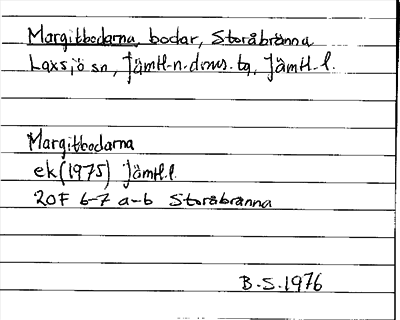 Margitbodarna, bodar, Storåbränna
Laxsjö sn, Jämtl-n. doms. tg, Jämtl. l.
Margitbodarna
ek (1975) Jämtl. l.
20F 6-7 a-b Storåbränna
B.S. 1976